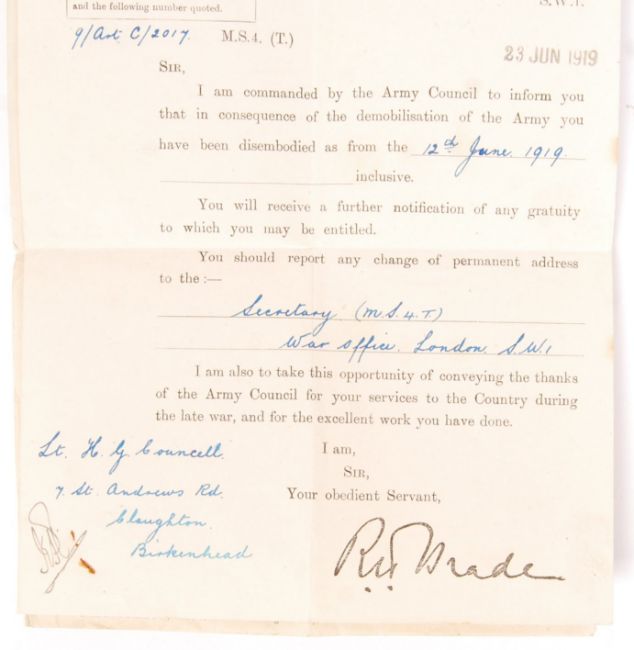 and the following number quoted.
S.W.1.
9/Art C/2017. M.S.4. (T.)
23 JUN 1919
SIR,
I am commanded by the Army Council to inform you
that in consequence of the demobilisation of the Army you
have been disembodied as from the 12th June. 1919.
inclusive.
You will receive a further notification of any gratuity
to which you may be entitled.
You should report any change of permanent address
to the :—
Secretary (M.S.4.T)
War office. London. S.W.1
I am also to take this opportunity of conveying the thanks
of the Army Council for your services to the Country during
the late war, and for the excellent work you have done.
Lt. H. G. Councell.
I am,
SIR,
7. St. Andrews Rd.
Your obedient Servant,
Claughton.
Birkenhead
R H Brade